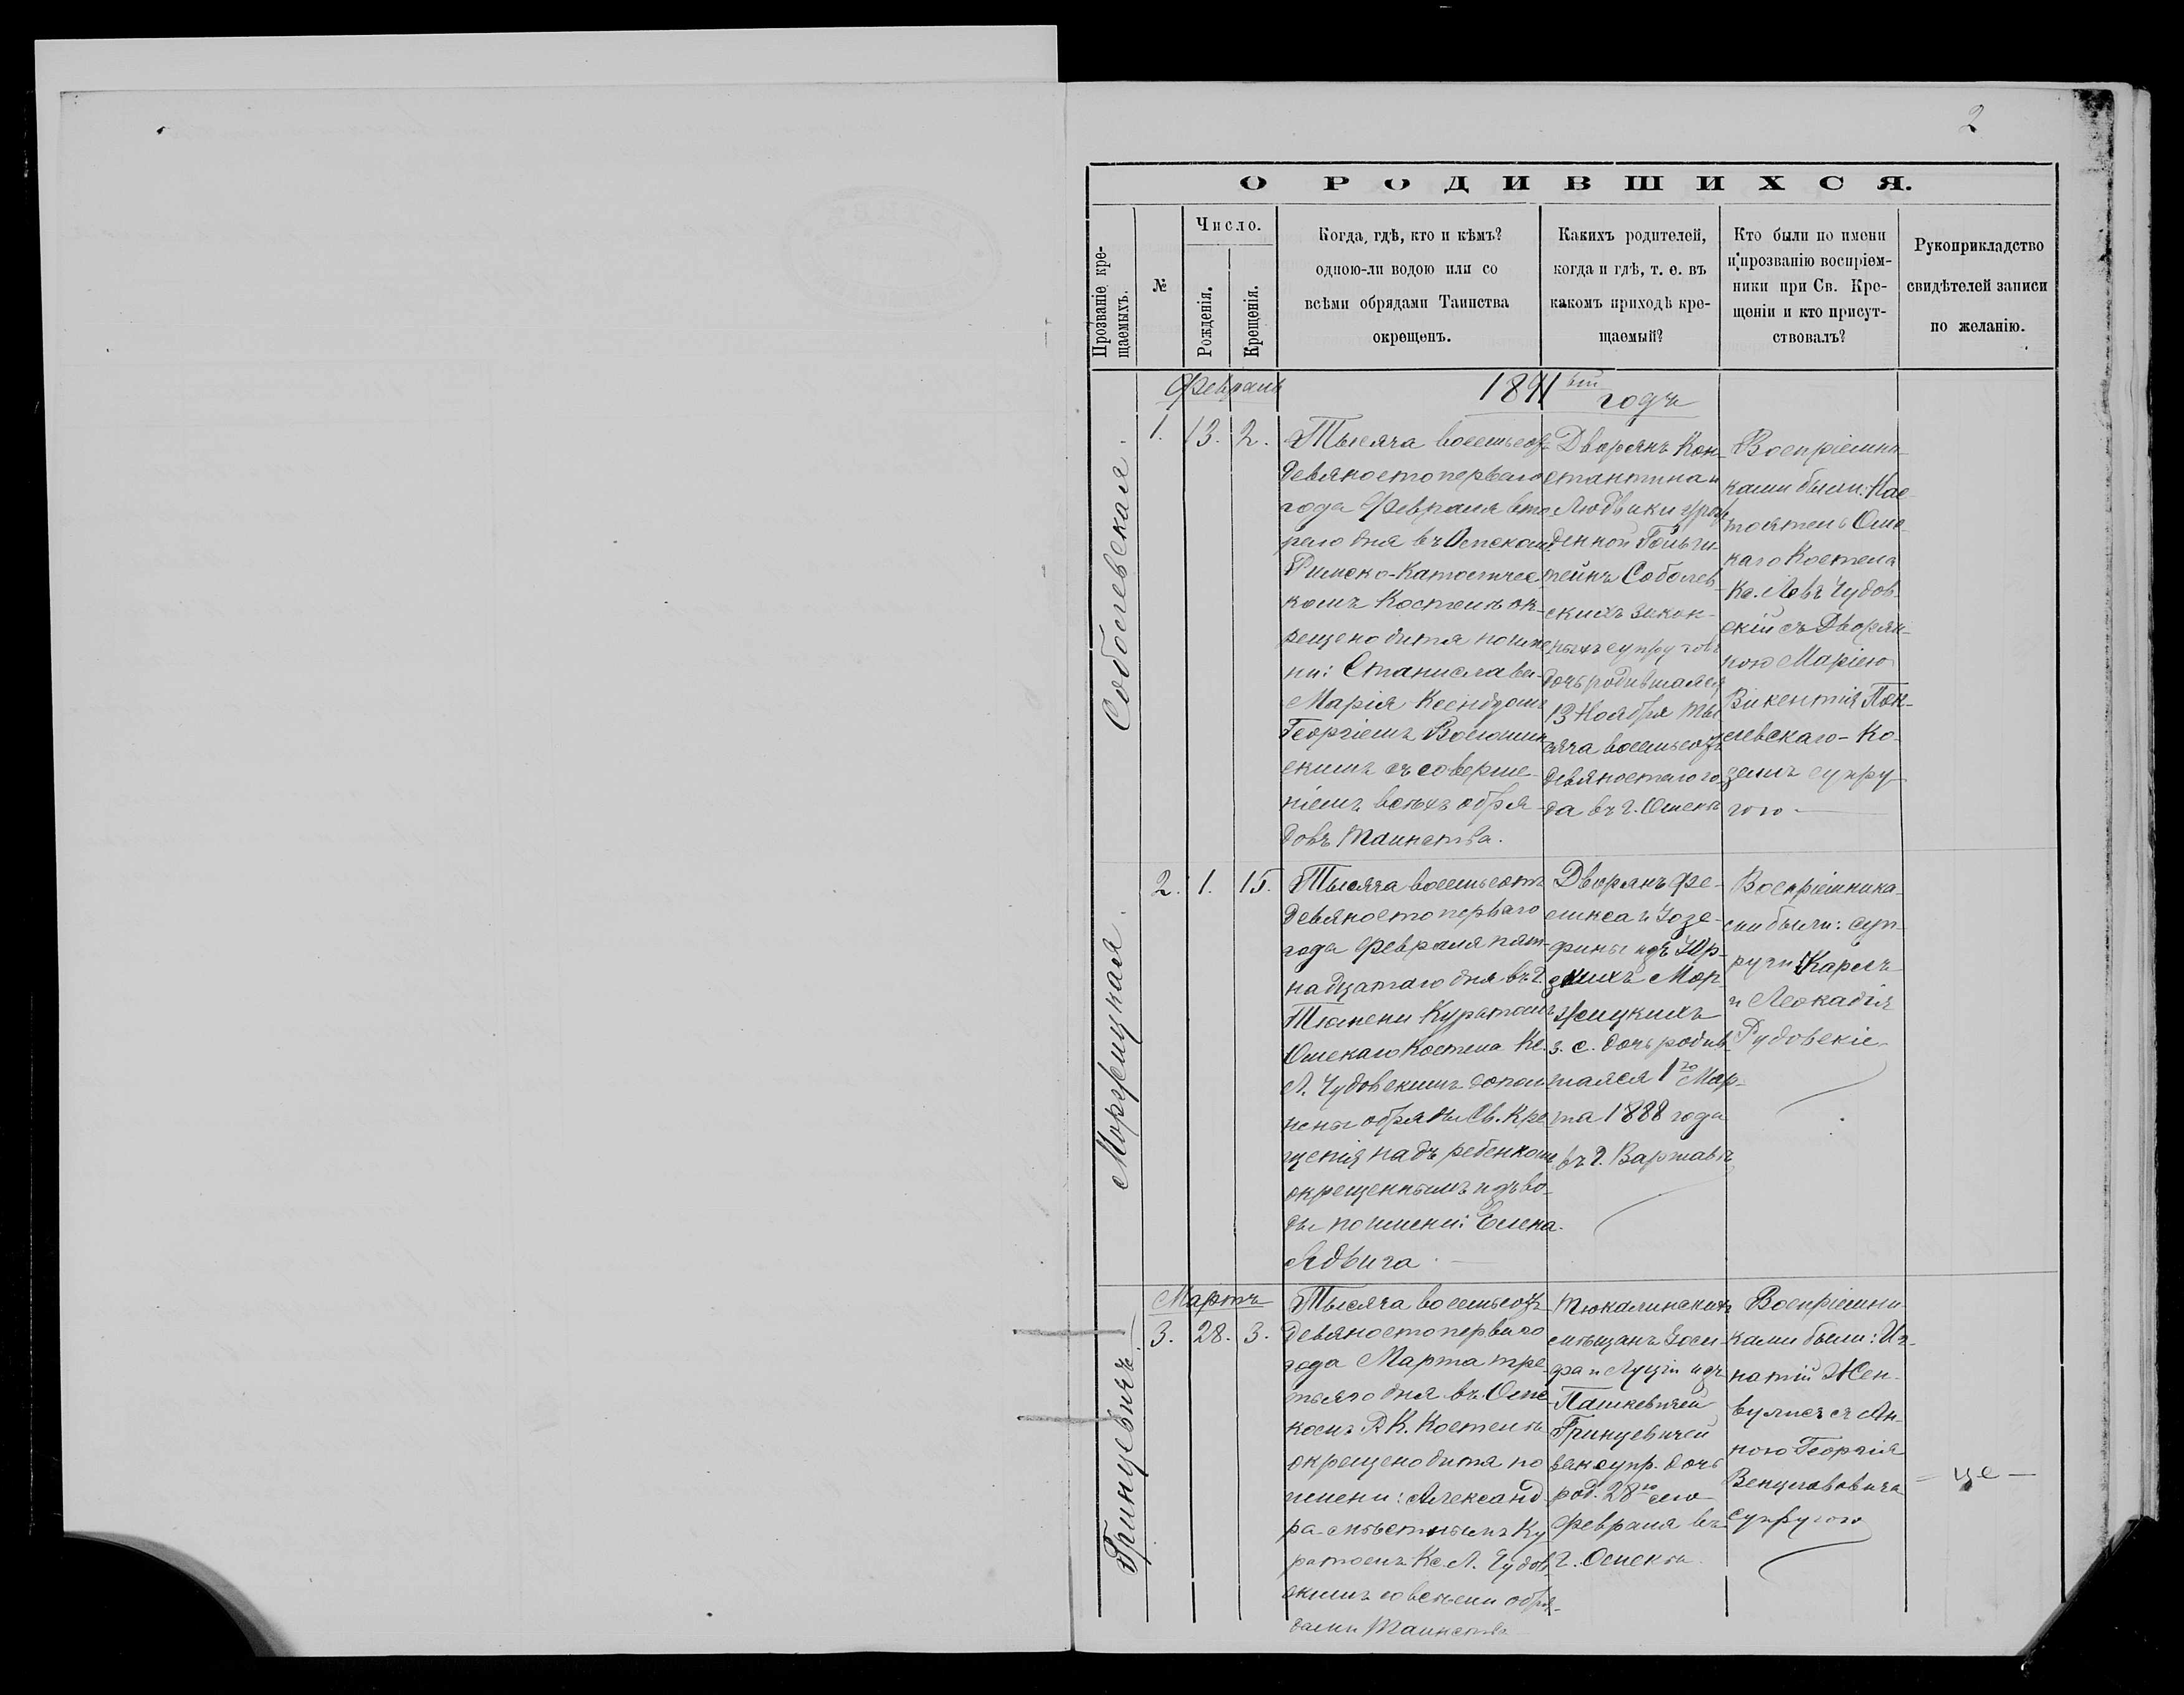 2
О РОДИВШИХСЯ.
Прозваніе кре-
щаемыхъ.
№
Число.
Рожденія.
Крещенія.
Когда, гдѣ, кто и кѣмъ?
одною-ли водою или со
всѣми обрядами Таинства
окрещенъ.
Какихъ родителей,
когда и гдѣ, т. е. въ
какомъ приходѣ кре-
щаемый?
Кто были по имени
и прозванію воспріем-
ники при Св. Кре-
щеніи и кто присут-
ствовалъ?
Рукоприкладство
свидѣтелей записи
по желанію.
Февраль
1891 ый
годъ
Соболевская.
1. 13. 2.
Тысяча восемьсотъ
девяносто перваго
года Февраля вто
раго дня въ Омском
Римско-Католичес
комъ Костелѣ ок-
рещено дитя по име
ни:
Марія Ксендзомъ
Георгіемъ
скимъ съ соверше-
ніемъ всѣхъ обря-
довъ Таинства.
Дворянъ Кон-
стантина и
Людвики урож
денной
Соболев
скихъ закон-
ныхъ супруговъ
дочь родившаяся
13 Ноября ты
сяча восемьсотъ
девяностаго го
да въ г. Омскѣ
Воспріемни-
ками были: Нас-
тоятель Омс-
каго Костела
Кс. Левъ Чудов-
скій съ Дворян-
кою Маріею
Викентія Пок-
левскаго-Ко-
зеллъ супру-
гою
Моржицкая.
2. 1. 15.
Тысяча восемьсотъ
девяносто перваго
года Февраля пят-
надцатаго дня въ г.
Тюмени Куратомъ
Омскаго Костела Кс.
Л. Чудовскимъ допол-
нены обряды Св. Кре
щенія надъ ребенкомъ
окрещеннымъ изъ во-
ды по имени: Елена
Ядвига
Дворянъ Фе-
ликса и Іозе-
фины изъ
Мор
жицкихъ
з. с. дочь родив
шаяся 1го Мар-
та 1888 года
въ г. Варшавѣ
Воспріемника-
ми были: суп-
руги Карлъ
и Леокадія
Рудовскіе
Гринцевичъ.
Мартъ
3. 28. 3.
Тысяча восемьсотъ
девяносто перваго
года Марта тре-
тьяго дня въ Омс
комъ Р.К. Костелѣ
окрещено дитя по
имени: Александ
ра мѣстнымъ Ку
ратомъ Кс. Л. Чудов
скимъ со всѣми обря-
дами Таинства
Тюкалинскихъ
мѣщанъ Іоси-
фа и Луціи изъ
Пашкевичей
Гринцевичей
зак. супр. дочь
род. 28го сего
Февраля въ
г. Омскѣ.
Воспріемни-
ками были: Иг-
натій Жен-
вулисъ съ Ан-
ною Георгія
Венцлавовича
супругою